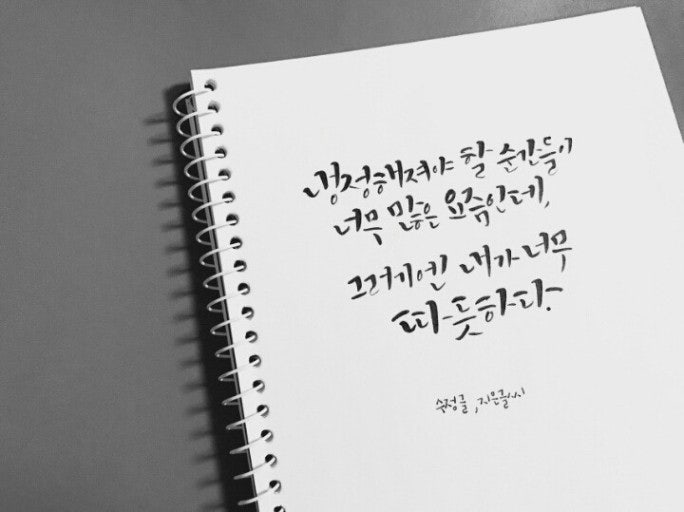 냉정해져야 할 순간들이
너무 많은 요즘인데,
그러기엔 내가 너무
따듯하다.
수정글, 지은글씨